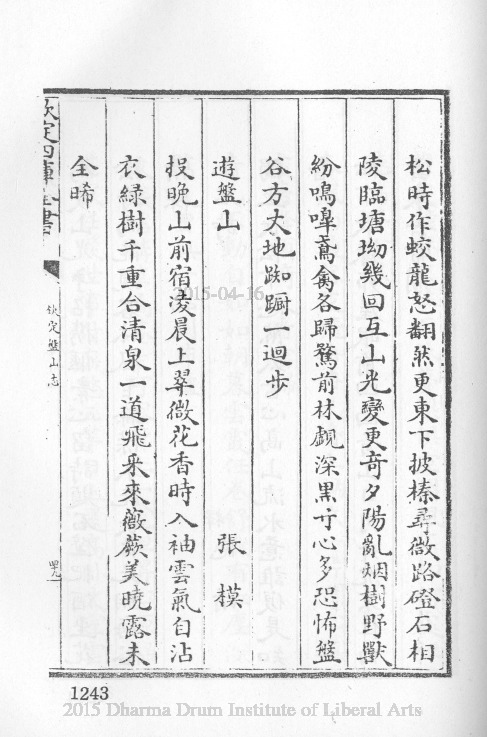 松時作蛟龍怒翻然更東下披榛尋微路磴石相
陵臨塘坳幾回互山光變更奇夕陽亂烟樹野獸
紛鳴嘷鳶禽各歸騖前林覷深黒寸心多恐怖盤
谷方丈地踟蹰一迴步
遊盤山 張模
投晩山前宿凌晨上翠微花香時入袖雲氣自沾
衣緑樹千重合清泉一道飛采來薇蕨美曉露未
全晞
欽定四庫全書
欽定盤山志
1243
2015-04-16
2015 Dharma Drum Institute of Liberal Arts